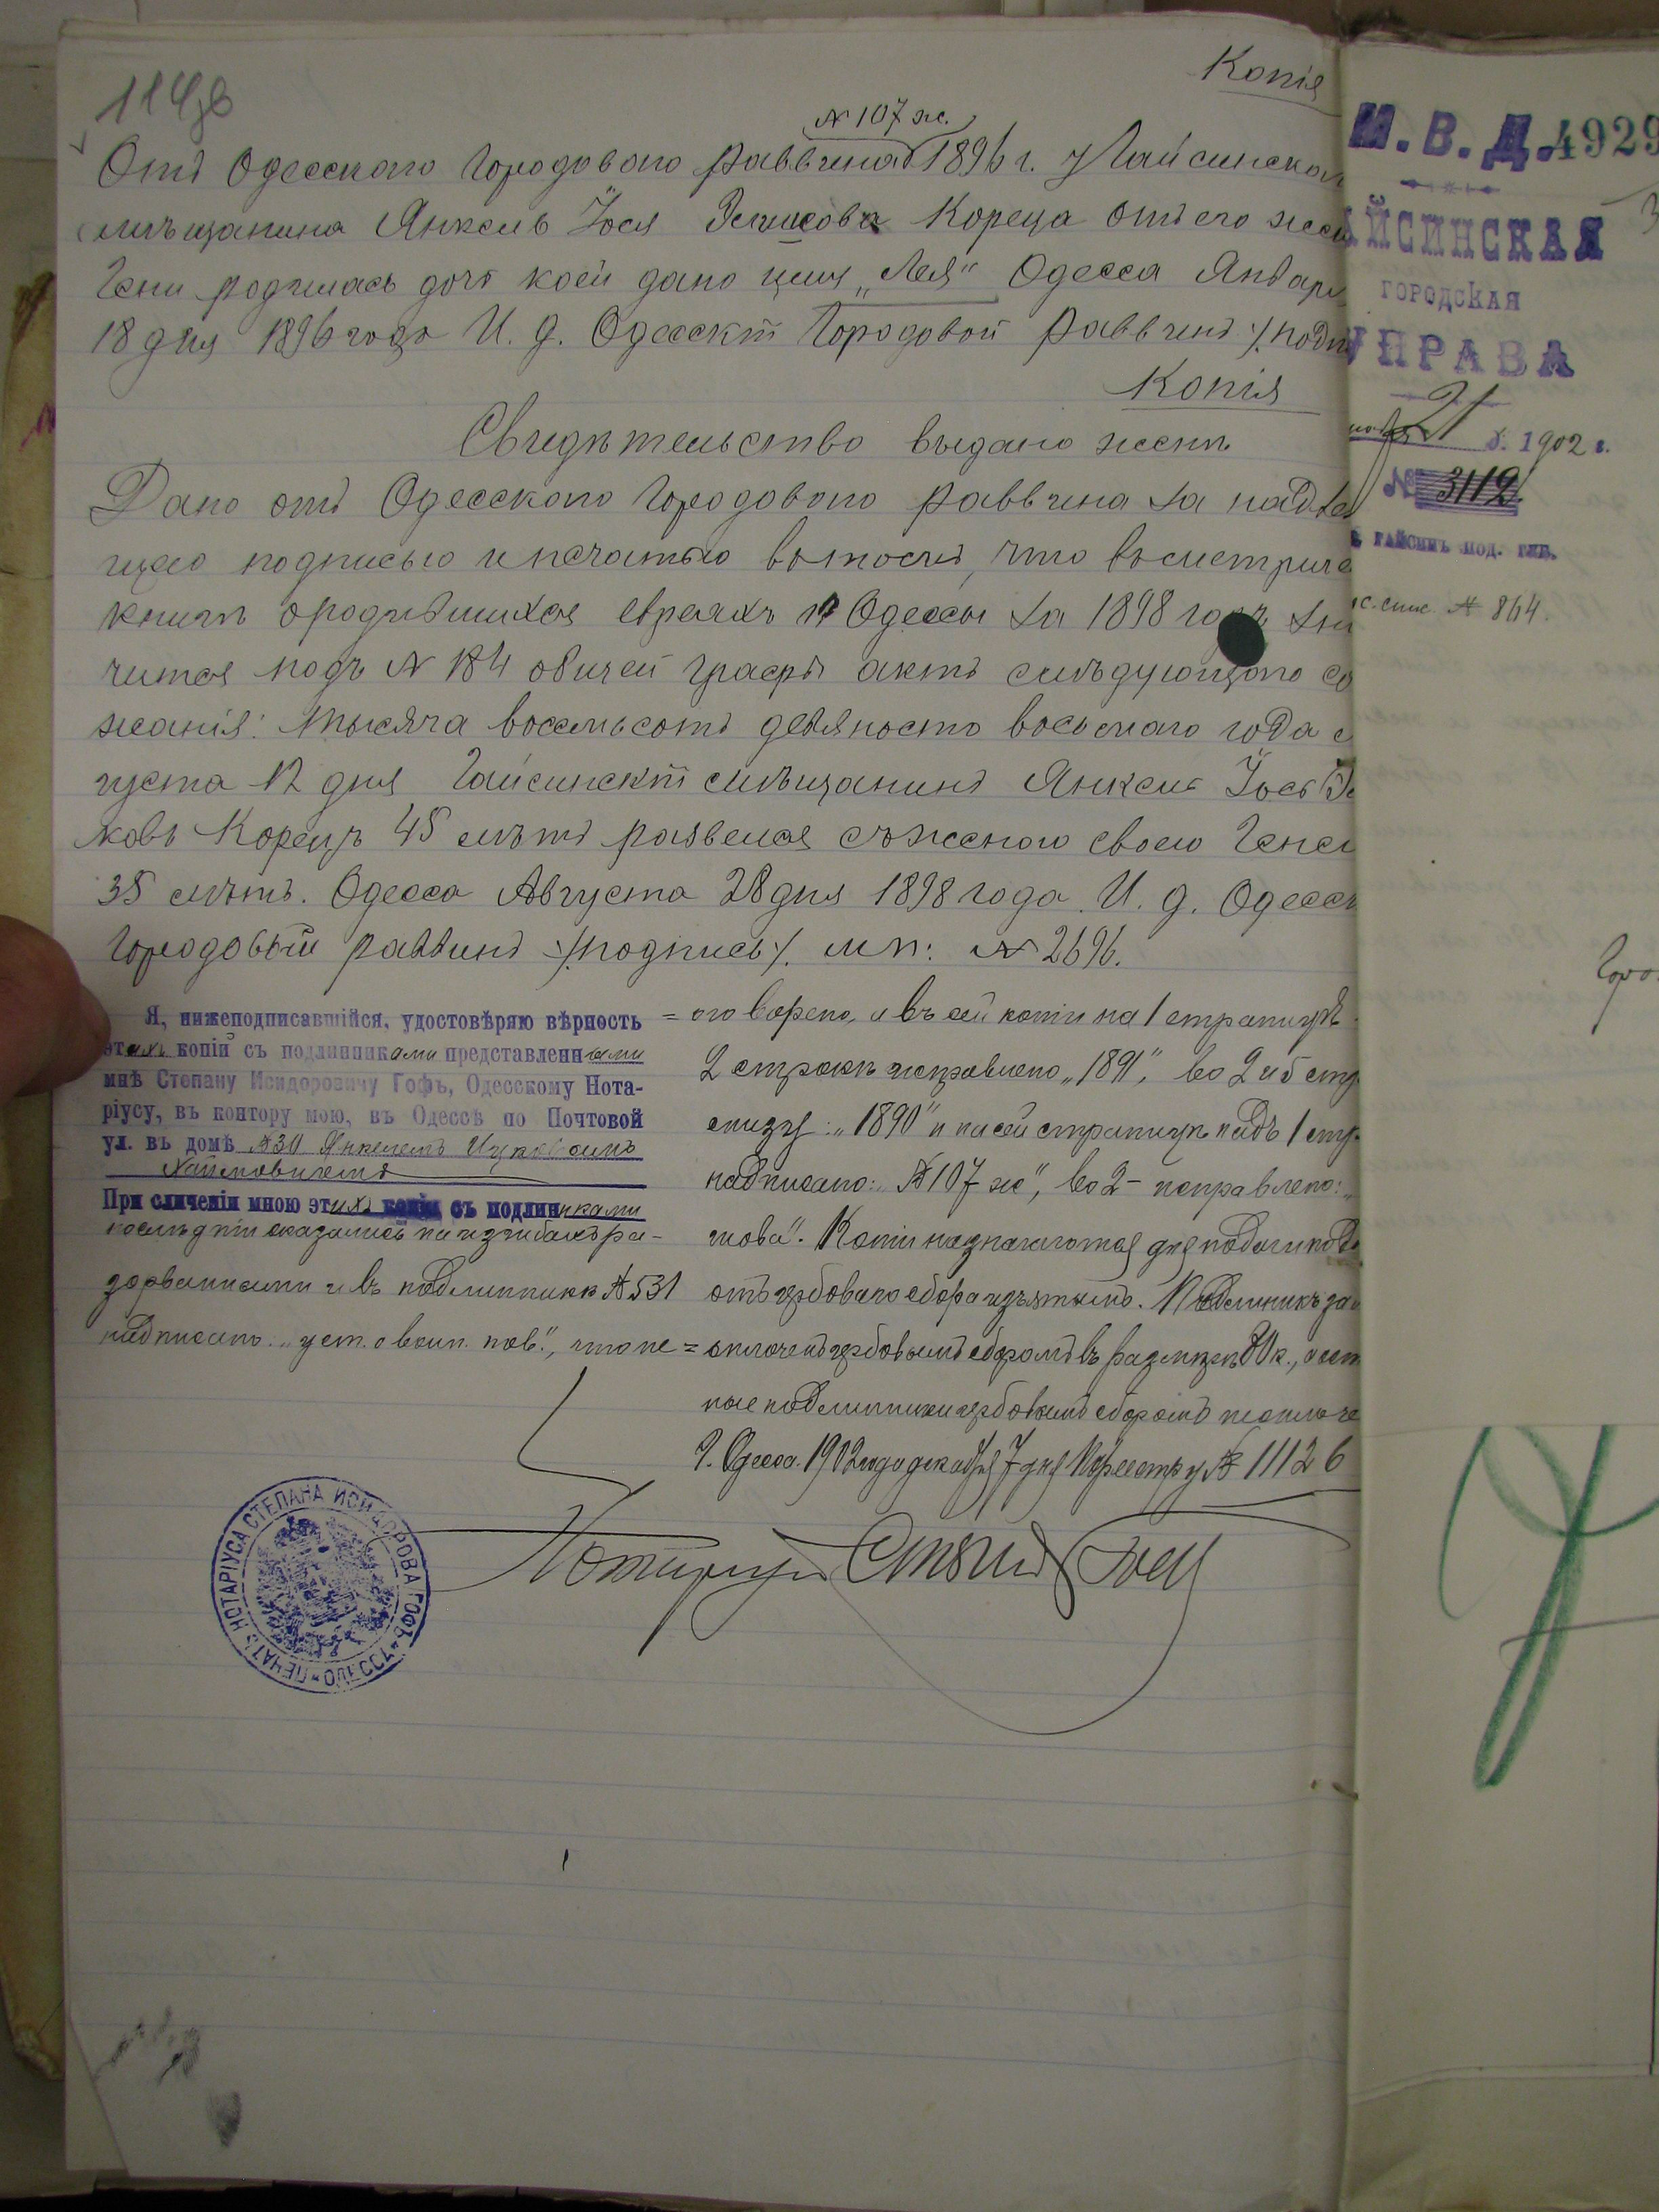 114 об
Копія
№ 107 ж.
Отъ Одесского Городового раввина 1896 г. у Гайсинског
мѣщанина Янкель Йося Кореца отъ его жен
Гени родилась дочь коей дано имя „Лея" Одесса Январ
18 дня 1896 года И. д. Одесскій Городовой раввинъ /подп
Копія
Свидѣтельство выдано женѣ
Дано отъ Одесского Городового раввина за надле
щею подписью и печатью въ томъ, что въ метриче
книгѣ о родившихся евреяхъ г. Одессы за 1898 годъ зна
чится подъ № 184 обичей графы актъ слѣдующого со
жанія: тысяча восемьсотъ девяносто восьмаго года
густа 12 дня Гайсинскій мѣщанинъ Янкель Йось
ковъ Корецъ 45 лѣтъ развелся съ женою своею Генею
35 лѣтъ. Одесса Августа 28 дня 1898 года. И. д. Одесск
Городовый раввинъ /подпись/. мп: № 2696.
Я, нижеподписавшійся, удостовѣряю вѣрность
этихъ копій съ подлинниками представленными
мнѣ Степану Исидоровичу Гофъ, Одесскому Нота-
ріусу, въ контору мою, въ Одессѣ по Почтовой
ул. въ домѣ №30 Янкелемъ Ицковымъ
Хаймовичемъ
При сличеніи мною этихъ копій съ подлинниками
послѣдніе оказались на изгибахъ ра-
зорванными и въ подлинникѣ № 531
надписано „уст. о воин. пов.", что не =
= оговорено, а въ сей копіи на 1 страницѣ
2 строкѣ исправлено „1891", во 2 и 5 стр
снизу: „1890" и на сей страницѣ надъ 1 стр.
надписано: „№ 107 ж", во 2 – исправлено: „
кова". Копіи назначаются для подачи по
отъ гербоваго сбора изъятымъ. Подлинникъ за
оплоченъ гербовымъ сборомъ въ размѣрѣ 80 к., а ост
ные подлинники гербовымъ сборомъ не оплоче
Г. Одесса. 1902 года декабря 7 дня По реестру № 11126
Нотаріусъ Степанъ Гофъ
ПЕЧАТЬ НОТАРІУСА СТЕПАНА ИСИДОРОВА ГОФЪ ОДЕССА
М. В. Д. 4929
АЙСИНСКАЯ
ГОРОДСКАЯ
УПРАВА
21 б. 1902 г.
№ 3112
ГАЙСИНЪ ПОД. ГУБ.
с. спис. № 864.
Горо